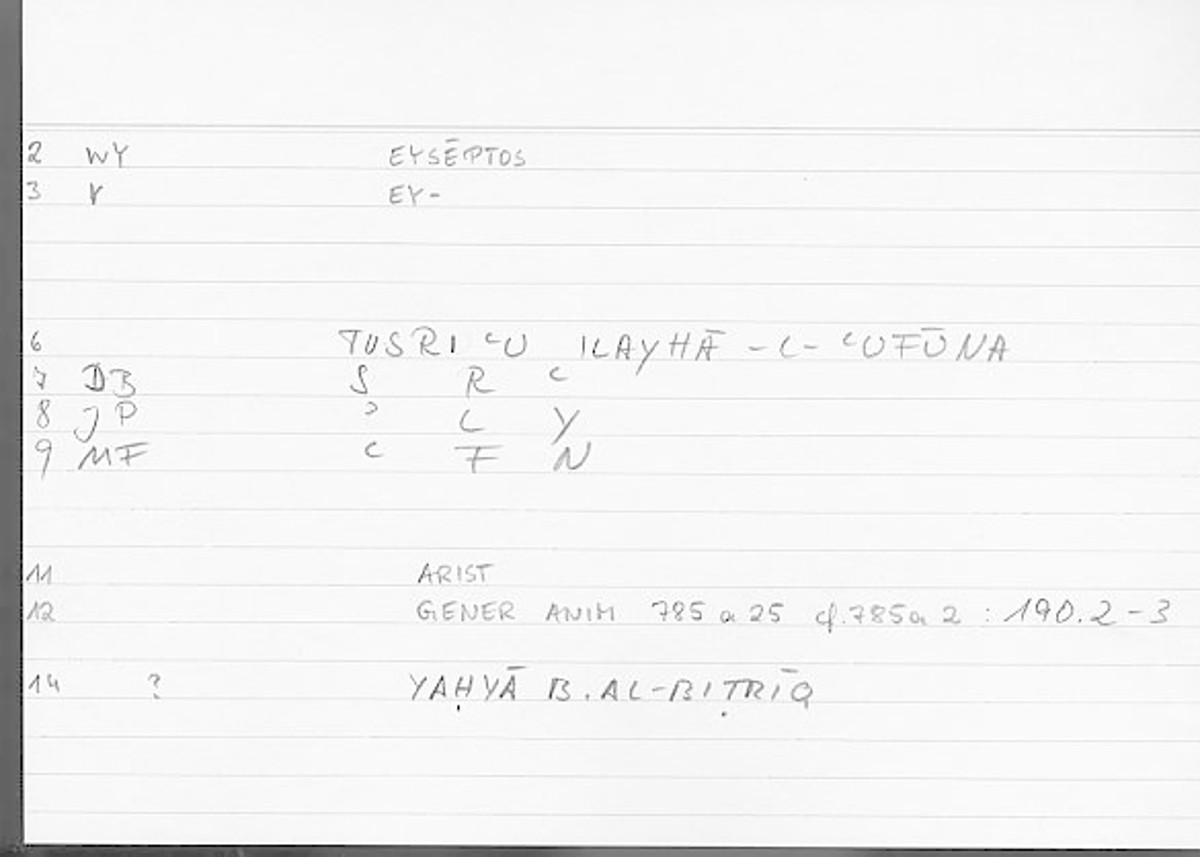 2 WY EYSĒPTOS
3 V EY-
6 TUSRI ʿU ILAYHĀ -L- ʿUFŪNA
7 DB S R ʿ
8 JP ʾ L Y
9 MF ʿ F N
11 ARIST
12 GENER ANIM 785 a 25 cf. 785a 2 : 190.2-3
14 ? YAḤYĀ B. AL-BIṬRĪQ